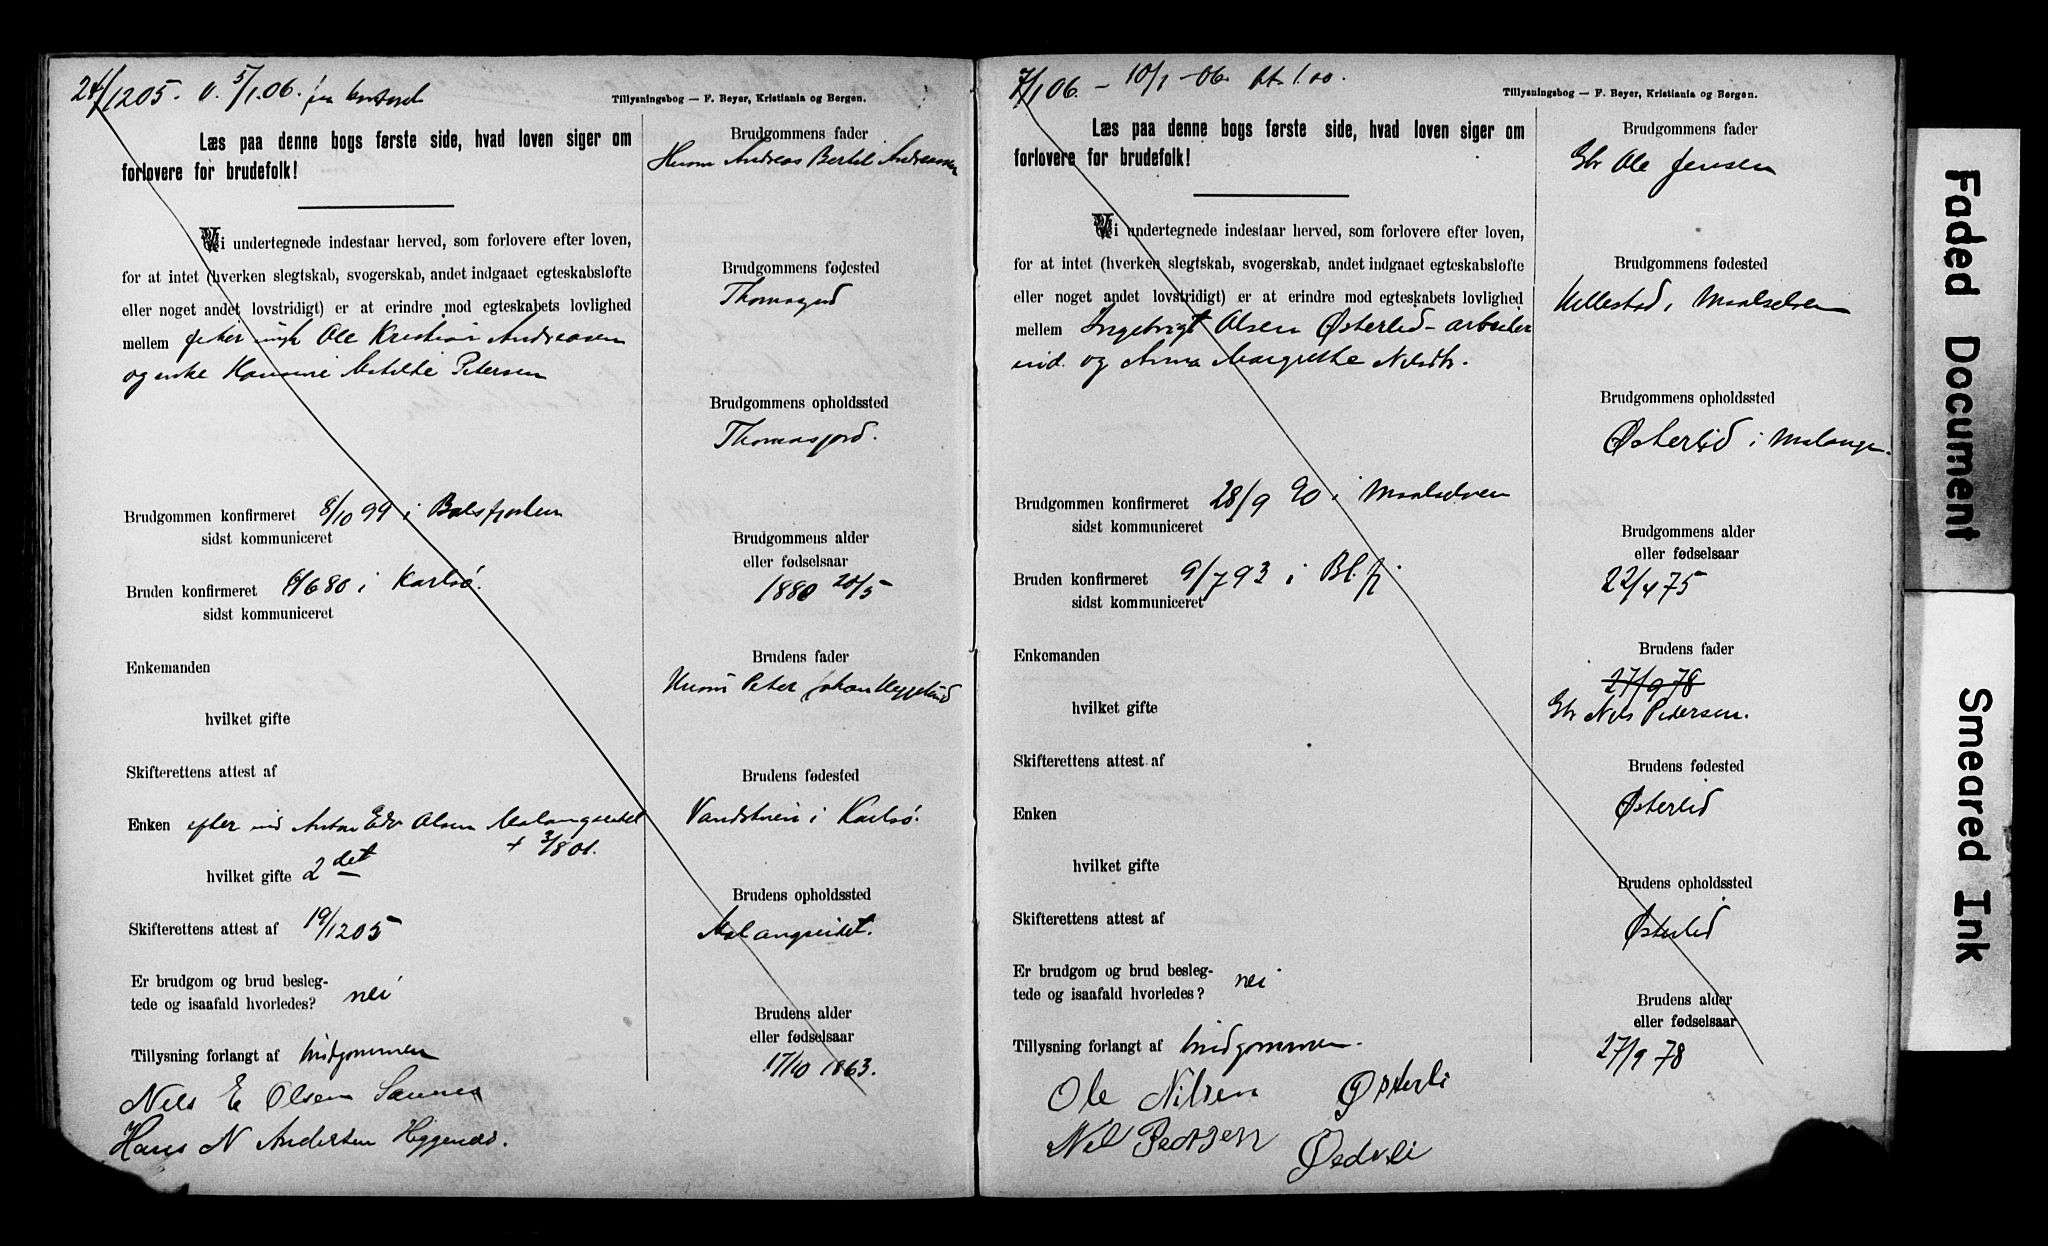 24/12 05. v. 5/1.06.
Tillysningsbog — F. Beyer, Kristiania og Bergen.
Læs paa denne bogs første side, hvad loven siger om
forlovere for brudefolk!
Vi undertegnede indestaar herved, som forlovere efter loven,
for at intet (hverken slegtskab, svogerskab, andet indgaaet egteskabsløfte
eller noget andet lovstridigt) er at erindre mod egteskabets lovlighed
mellem Ole Kristian Andreasen
og enke Hansine Matilde Petersen
Brudgommen konfirmeret 8/10 99 i Balsfjorden
sidst kommuniceret
Bruden konfirmeret 6/6 80 i Karlsø.
sidst kommuniceret
Enkemanden
hvilket gifte
Skifterettens attest af
Enken efter ind Anton Edv Olsen Malangseidet
+ 3/8 01.
hvilket gifte 2det
Skifterettens attest af 19/12 05
Er brudgom og brud besleg-
tede og isaafald hvorledes? nei
Tillysning forlangt af brudgommen
Nels E Olsen Sannes
Hans N Andersen Heggenæs.
Brudgommens fader
Husm Andreas Bertel Andreassen
Brudgommens fødested
Thomasjord
Brudgommens opholdssted
Thomasjord.
Brudgommens alder
eller fødselsaar
1880 20/5
Brudens fader
Husm Peter Johan Heggelund
Brudens fødested
Vandstuen i Karlsø.
Brudens opholdssted
Malangseidet.
Brudens alder
eller fødselsaar
17/10 1863.
7/1 06. – 10/1 – 06. bt. 1.00.
Tillysningsbog — F. Beyer, Kristiania og Bergen.
Læs paa denne bogs første side, hvad loven siger om
forlovere for brudefolk!
Vi undertegnede indestaar herved, som forlovere efter loven,
for at intet (hverken slegtskab, svogerskab, andet indgaaet egteskabsløfte
eller noget andet lovstridigt) er at erindre mod egteskabets lovlighed
mellem Ingebrigt Olsen Østerlid – arbeider
ind. og Anna Margrethe Nilsdtr.
Brudgommen konfirmeret 28/9 90 i Maalselven
sidst kommuniceret
Bruden konfirmeret 9/7 93 i Bl.fj
sidst kommuniceret
Enkemanden
hvilket gifte
Skifterettens attest af
Enken
hvilket gifte
Skifterettens attest af
Er brudgom og brud besleg-
tede og isaafald hvorledes? nei
Tillysning forlangt af brudgommen.
Ole Nilsen Østerli
Nil Pedsen Østerli
Brudgommens fader
Gbr Ole Jensen
Brudgommens fødested
Hellestad i Maalselven
Brudgommens opholdssted
Østerlid i Malangen.
Brudgommens alder
eller fødselsaar
22/4 75
Brudens fader
27/9 78
Gbr Nils Pedersen.
Brudens fødested
Østerlid
Brudens opholdssted
Østerlid
Brudens alder
eller fødselsaar
27/9 78
Faded Document
Smeared Ink